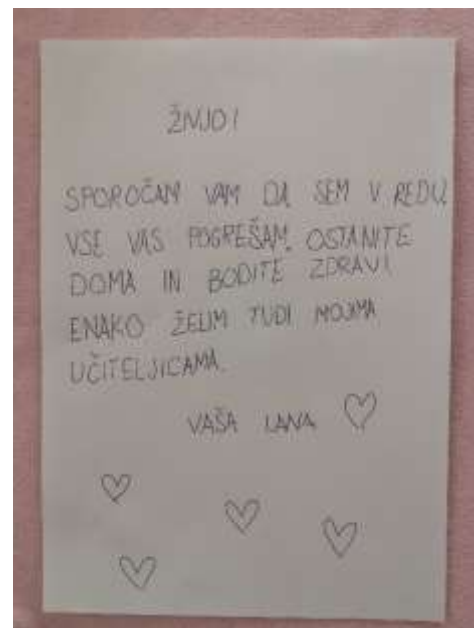 ŽIVJO!
SPOROČAM VAM DA SEM V REDU.
VSE VAS POGREŠAM. OSTANITE
DOMA IN BODITE ZDRAVI.
ENAKO ŽELIM TUDI MOJIMA
UČITELJICAMA.
VAŠA LANA